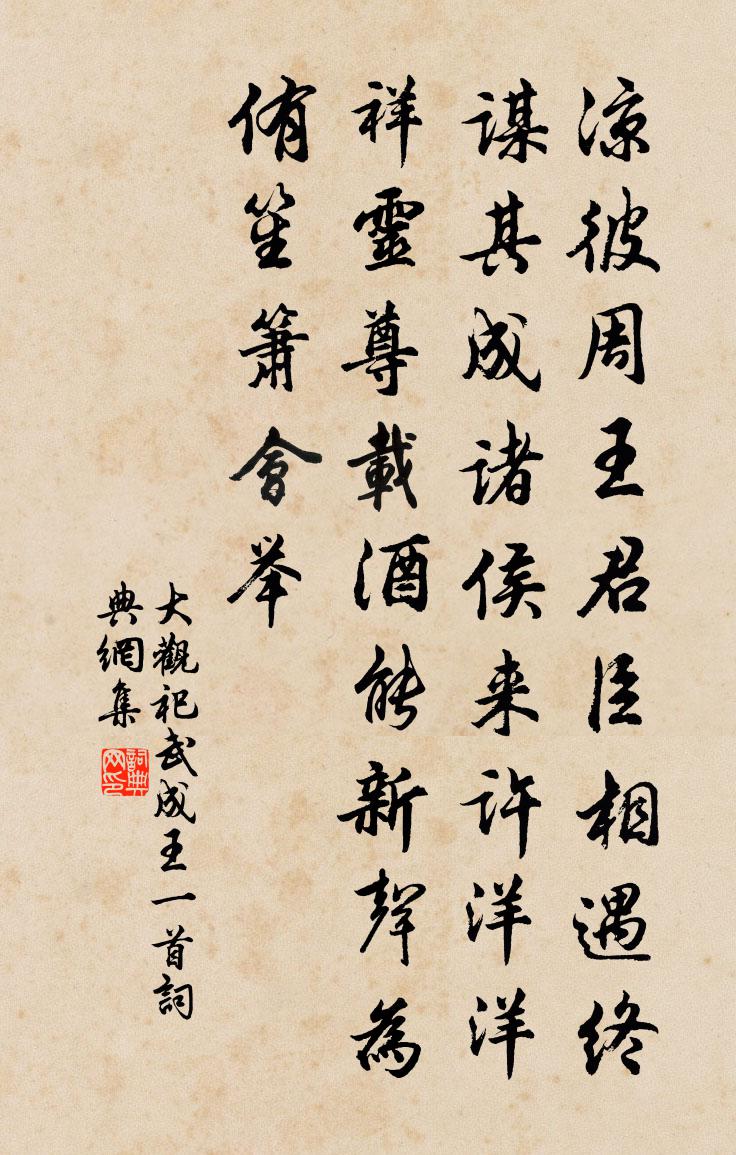 涼彼周王君臣相遇終
謀其成诸侯来許洋洋
祥靈尊載酒能新聲為
侑笙簫會举
大觀祀武成王一首詞
典網集
詞典
网印